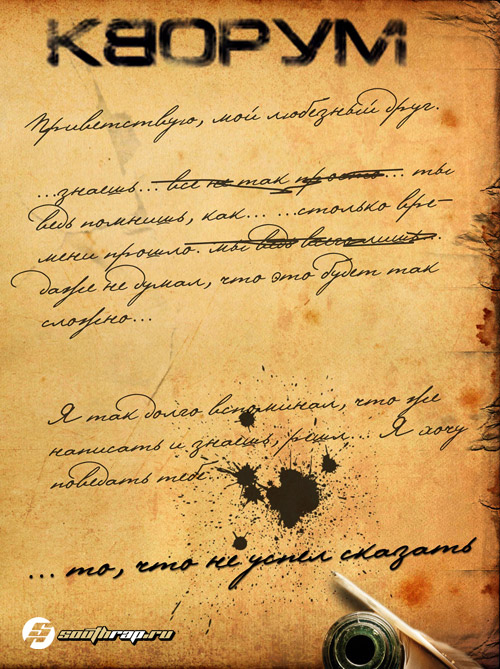 КВОРУМ
Приветствую, мой любезный друг.
...знаешь... все не так просто... ты
ведь помнишь, как... ...столько вре-
мени прошло. мы ведь всего лишь...
даже не думал, что это будет так
сложно...
Я так долго вспоминал, что же
написать и знаешь, решил... Я хочу
поведать тебе
... то, что не успел сказать
southrap.ru